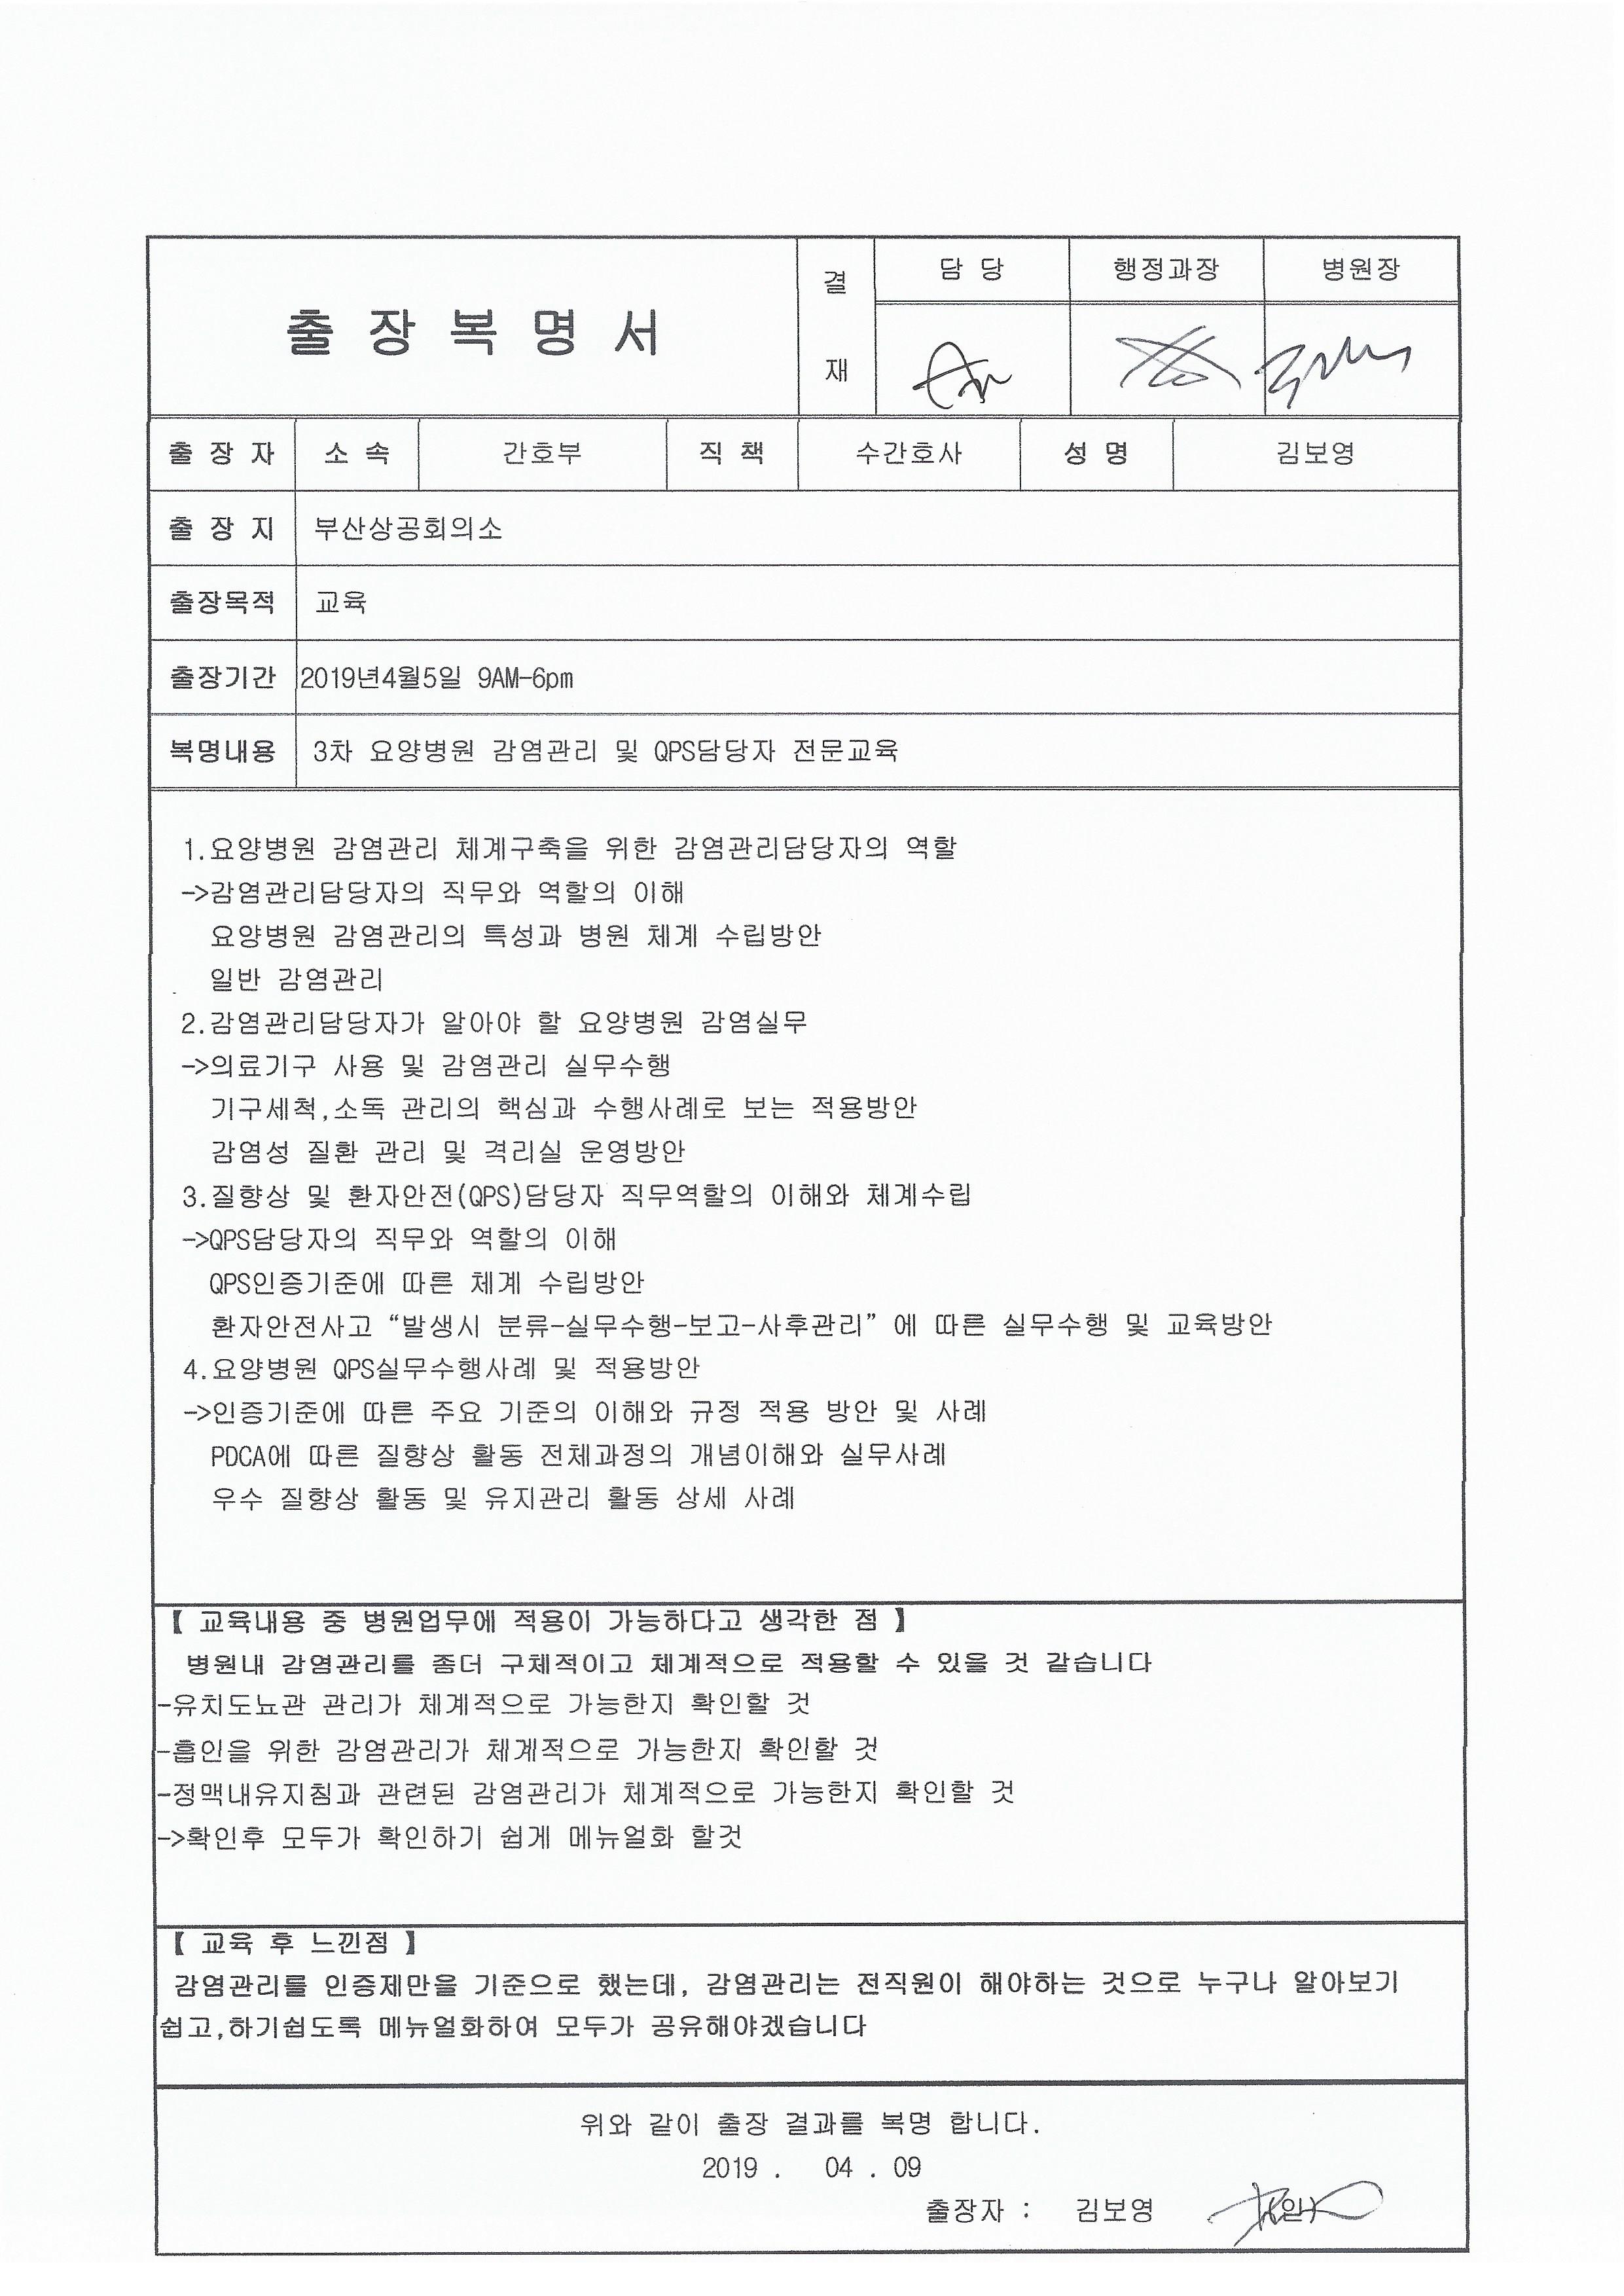 출 장 복 명 서
결 재
담 당 행정과장 병원장
출 장 자 소 속 간호부 직 책 수간호사 성 명 김보영
출 장 지 부산상공회의소
출장목적 교육
출장기간 2019년4월5일 9AM-6pm
복명내용 3차 요양병원 감염관리 및 QPS담당자 전문교육
1.요양병원 감염관리 체계구축을 위한 감염관리담당자의 역할
->감염관리담당자의 직무와 역할의 이해
요양병원 감염관리의 특성과 병원 체계 수립방안
일반 감염관리
2.감염관리담당자가 알아야 할 요양병원 감염실무
->의료기구 사용 및 감염관리 실무수행
기구세척,소독 관리의 핵심과 수행사례로 보는 적용방안
감염성 질환 관리 및 격리실 운영방안
3.질향상 및 환자안전(QPS)담당자 직무역할의 이해와 체계수립
->QPS담당자의 직무와 역할의 이해
QPS인증기준에 따른 체계 수립방안
환자안전사고 “발생시 분류-실무수행-보고-사후관리” 에 따른 실무수행 및 교육방안
4.요양병원 QPS실무수행사례 및 적용방안
->인증기준에 따른 주요 기준의 이해와 규정 적용 방안 및 사례
PDCA에 따른 질향상 활동 전체과정의 개념이해와 실무사례
우수 질향상 활동 및 유지관리 활동 상세 사례
【 교육내용 중 병원업무에 적용이 가능하다고 생각한 점 】
병원내 감염관리를 좀더 구체적이고 체계적으로 적용할 수 있을 것 같습니다
-유치도뇨관 관리가 체계적으로 가능한지 확인할 것
-흡인을 위한 감염관리가 체계적으로 가능한지 확인할 것
-정맥내유지침과 관련된 감염관리가 체계적으로 가능한지 확인할 것
->확인후 모두가 확인하기 쉽게 메뉴얼화 할것
【 교육 후 느낀점 】
감염관리를 인증제만을 기준으로 했는데, 감염관리는 전직원이 해야하는 것으로 누구나 알아보기
쉽고,하기쉽도록 메뉴얼화하여 모두가 공유해야겠습니다
위와 같이 출장 결과를 복명 합니다.
2019 . 04 . 09
출장자 : 김보영 (인)